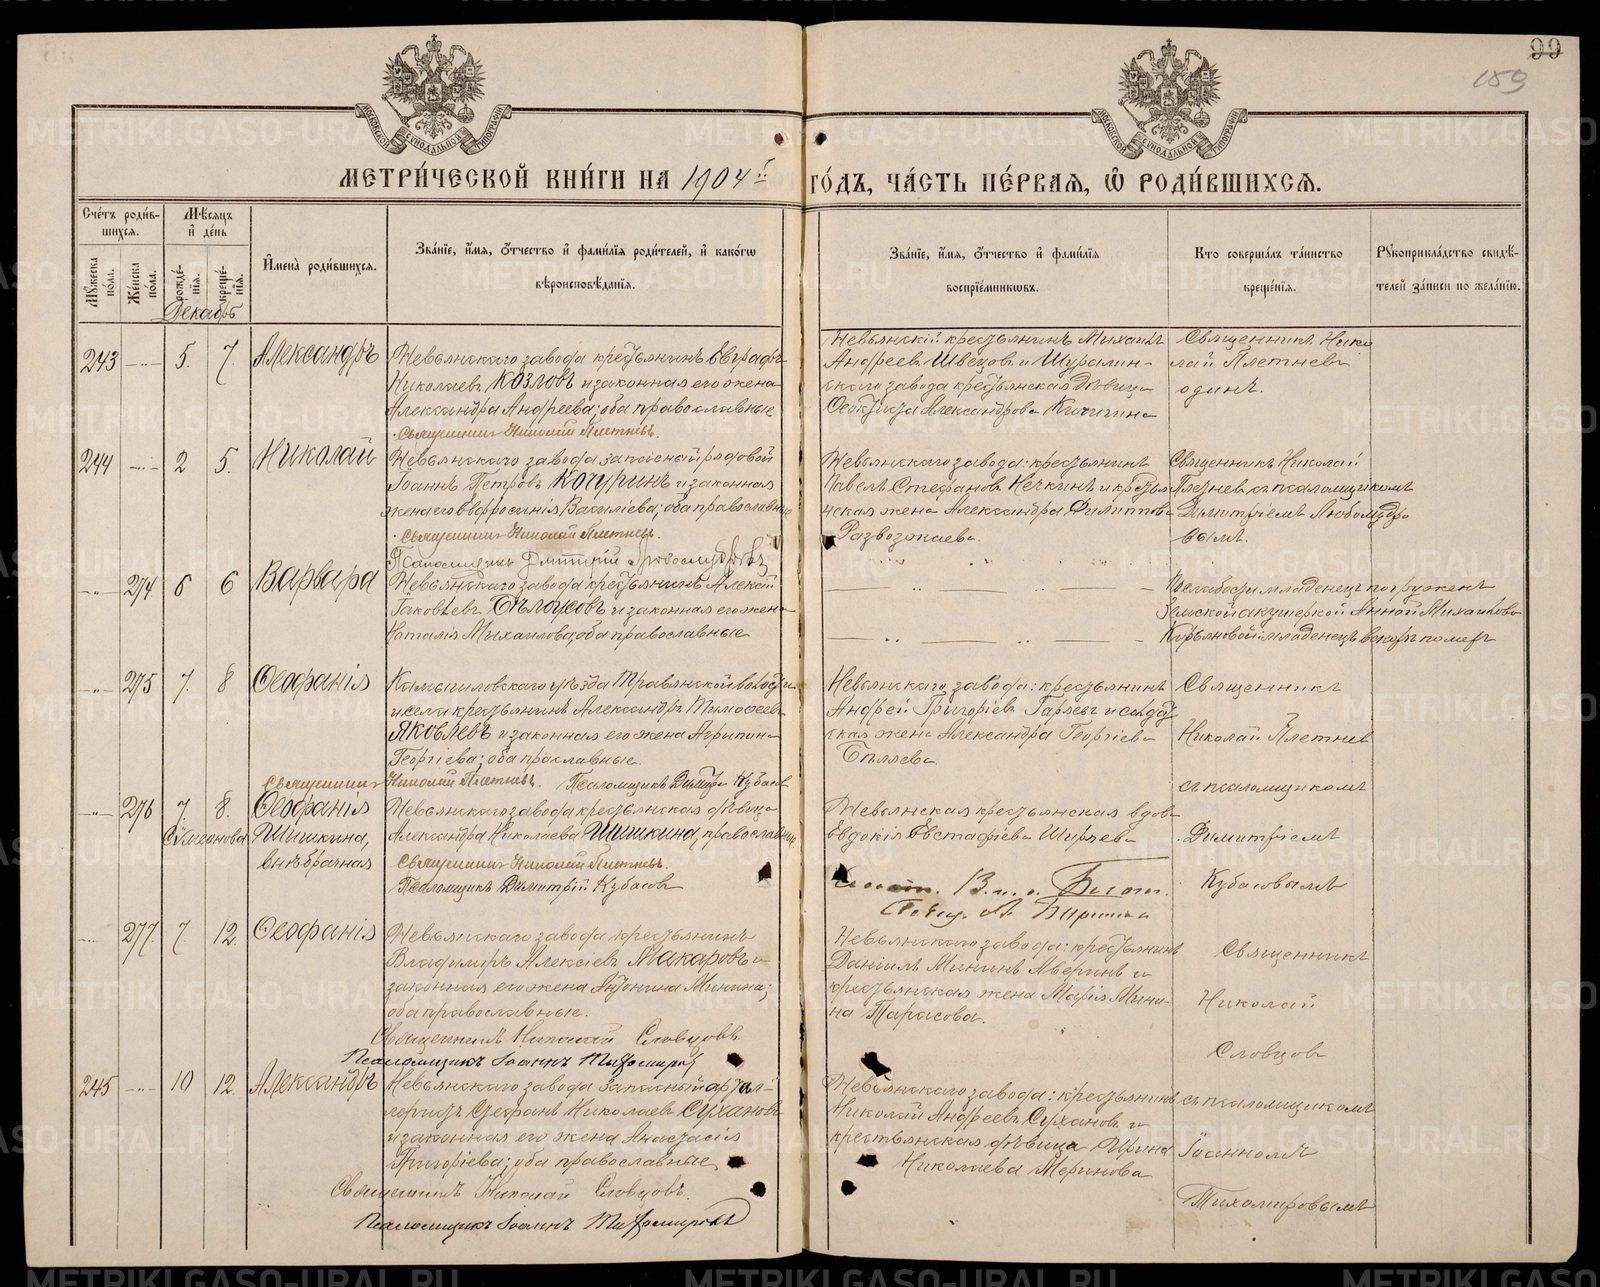 99
159
МЕТРИ́ЧЕСКОЙ КНИ́ГИ НА 1904й ГО́ДЪ, ЧА́СТЬ ПЕ́РВАЯ, Ѡ РОДИ́ВШИХСЯ.
Сче́тъ роди́вшихся.
Мꙋ́жеска по́ла.
Же́нска по́ла.
Мѣ́сяцъ и де́нь
рожде́нїя.
креще́нїя.
Имена̀ роди́вшихся.
Зва́нїе, и́мя, ѻ́тчество и фами́лїя роди́телей, и како́гѡ вѣроисповѣ́данїя.
Зва́нїе, и́мя, ѻ́тчество и фами́лїя воспрїе́мникѡвъ.
Кто соверша́лъ та́инство креще́нїя.
Рꙋкоприкла́дство свидѣ́телей за́писи по жела́нїю.
Декабрь
243 —"— 5. 7. Александръ
Невьянскаго завода крестьянинъ Евграфъ
Николаевъ Козловъ и законная его жена
Александра Андреева; оба православные
Священникъ Николай Плетневъ.
Невьянскій крестьянинъ Михаилъ
Андреевъ Швецовъ и Шуралин-
скаго завода крестьянская дѣвица
Александрова Кичигина
Священникъ Нико
лай Плетневъ
одинъ.
244 —"— 2 5. Николай
Невьянскаго завода запасный рядовой
Іоаннъ Петровъ Кочуринъ и законная
жена его Евфросинія Василіева; оба православные
Священникъ Николай Плетневъ.
Псаломщикъ Димитрій Любомудровъ
Невьянскаго завода: крестьянинъ
Павелъ Стефановъ Нечкинъ и крестья
нская жена Александра Филиппова
Развозжаева.
Священникъ Николай
Плетневъ съ псаломщикомъ
Димитріемъ Любомудро
вымъ.
—"— 274 6 6 Варвара
Невьянскаго завода крестьянинъ Алексѣй
Іаковлевъ Бѣлоусовъ и законная его жена
Наталія Михаилова, оба православные
По слабости младенецъ погруженъ
Земской акушеркой Анной Михайловой
младенецъ вскорѣ померъ
—"— 275 7. 8 Ѳеофанія
Камышловскаго уѣзда Травянской волости
и села крестьянинъ Александръ Тимофеевъ
Яковлевъ и законная его жена Агрипина
Георгіева; оба праславные.
Священникъ Николай Плетневъ. Псаломщикъ Димитр Кубасовъ
Невьянскаго завода: крестьянинъ
Андрей Григоріевъ Гаряевъ и солдат
ская жена Александра Георгіева
Бѣляева
Священникъ
Николай Плетнев
съ псаломщикомъ
Димитріемъ
Кубасовымъ
—"— 276 7. 8. Ѳеофанія
Симеонова Шишкина,
внѣбрачная
Невьянскаго завода крестьянская дѣвица
Александра Николаева Шишкина, православная
Священникъ Николай Плетневъ.
Псаломщикъ Димитрій Кубасовъ
Невьянская крестьянская вдова
Евдокія Евстафіева Ширяева
—"— 277. 7. 12. Ѳеофанія
Невьянскаго завода крестьянинъ
Владимиръ Алексіевъ Макаровъ и
законная его жена Антонина Минина;
оба православные.
Священникъ Николай Словцовъ.
Псаломщикъ Іоаннъ Тихомировъ
Невьянскаго завода: крестьянинъ
Даніилъ Мининъ Аверинъ и
крестьянская жена Марія Мини-
на Тарасова.
Священникъ
Николай
Словцовъ
съ псаломщикомъ
Іоанномъ
Тихомировымъ
245 —"— 10 12. Александръ
Невьянскаго завода запасный артил-
леристъ Стефанъ Николаевъ Сухановъ
и законная его жена Анастасія
Григоріева; оба православные.
Священникъ Николай Словцовъ.
Псаломщикъ Іоаннъ Тихомировъ
Невьянскаго завода: крестьянинъ
Николай Андреевъ Сухановъ и
крестьянская дѣвица Ирина
Николаева Меринова
METRIKI.GASO-URAL.RU